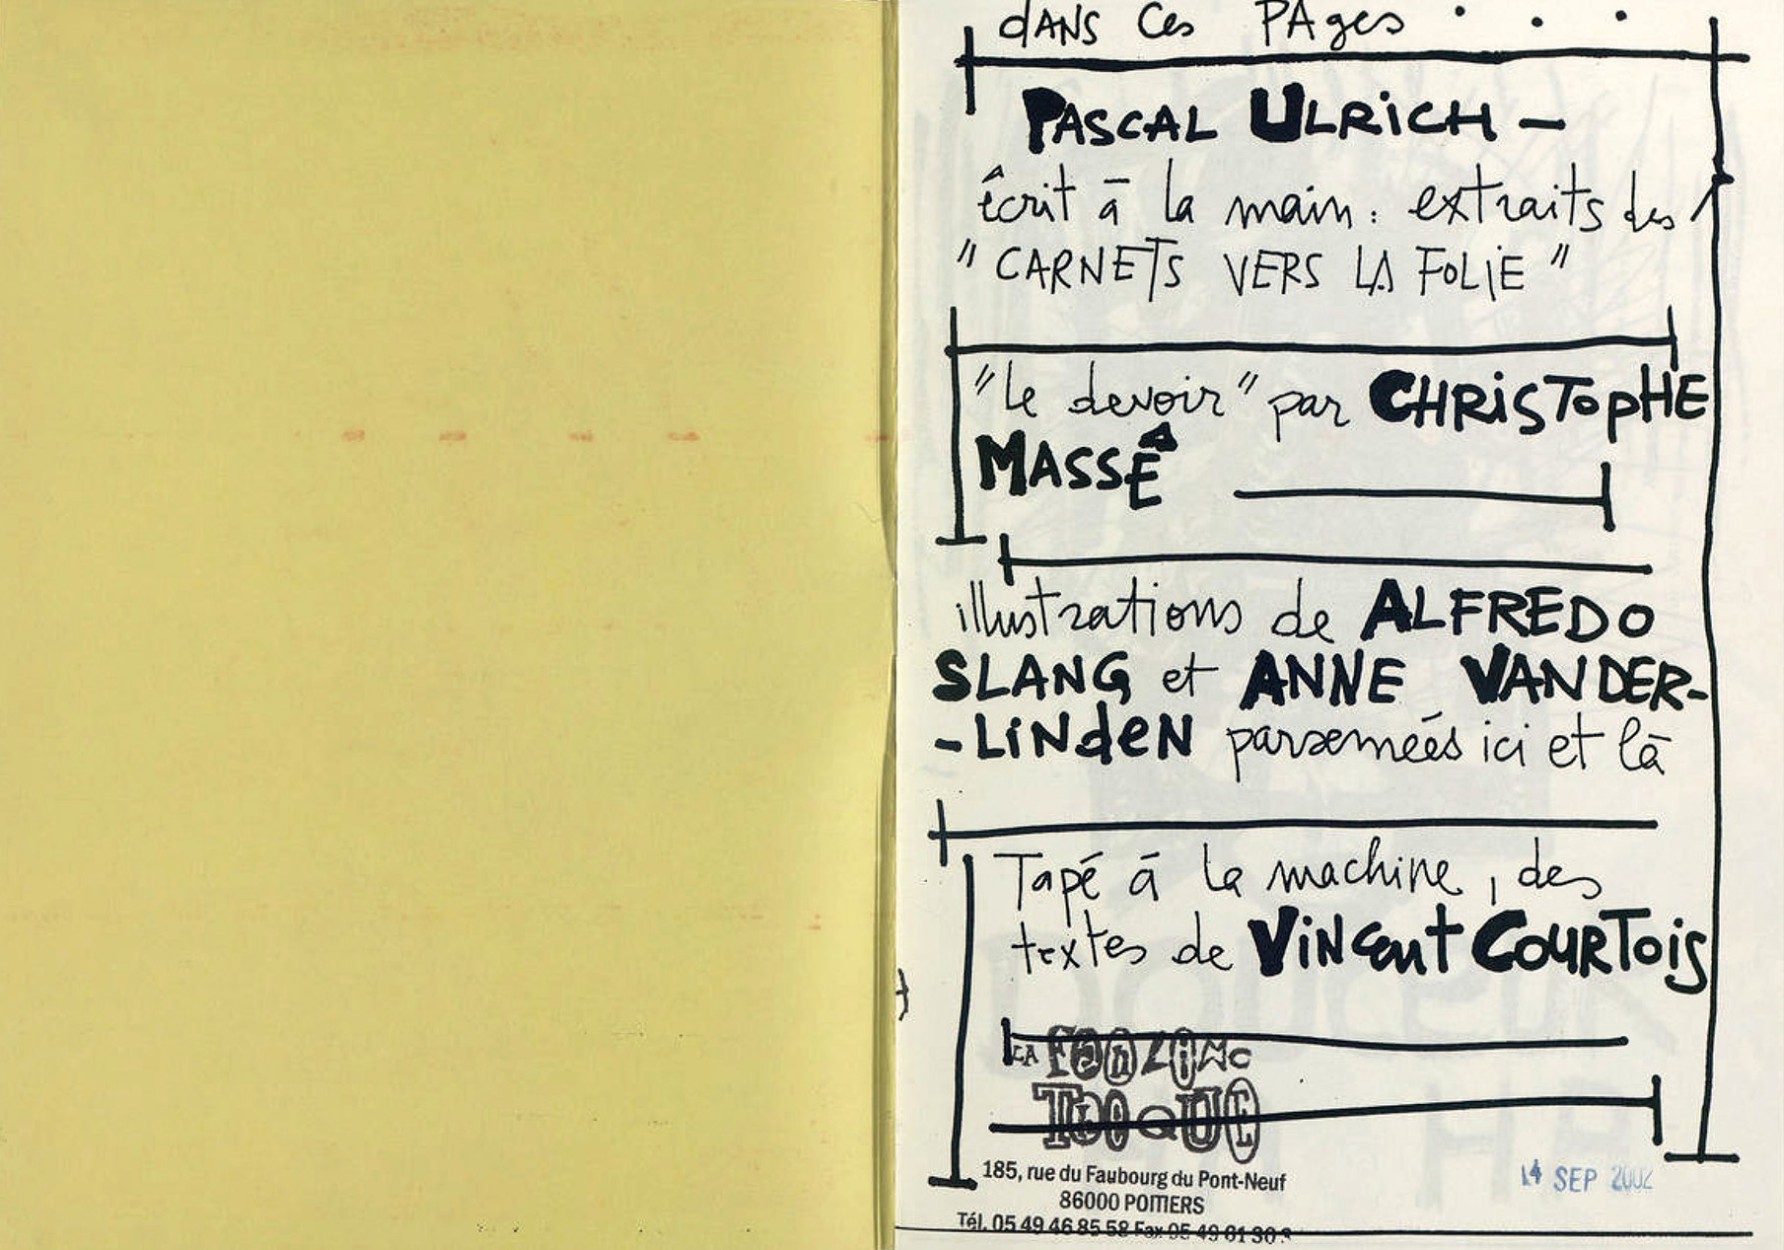 dANS Ces PAges . . .
PASCAL ULRiCH –
écrit à la main : extraits des
"CARNETS VERS LA FOLiE"
"le devoir" par CHRiSTOpHE
MASSÉ
illustrations de ALFREDO
SLANG et ANNE VANDER-
-LiNdeN parsemées ici et là
Tapé à la machine, des
textes de ViNCent COURTois
LA FanZiNe
THeQUE
185, rue du Faubourg du Pont-Neuf
86000 POITIERS
14 SEP 2002
Tél. 05 49 46 85 58 Fax 05 49 61 30